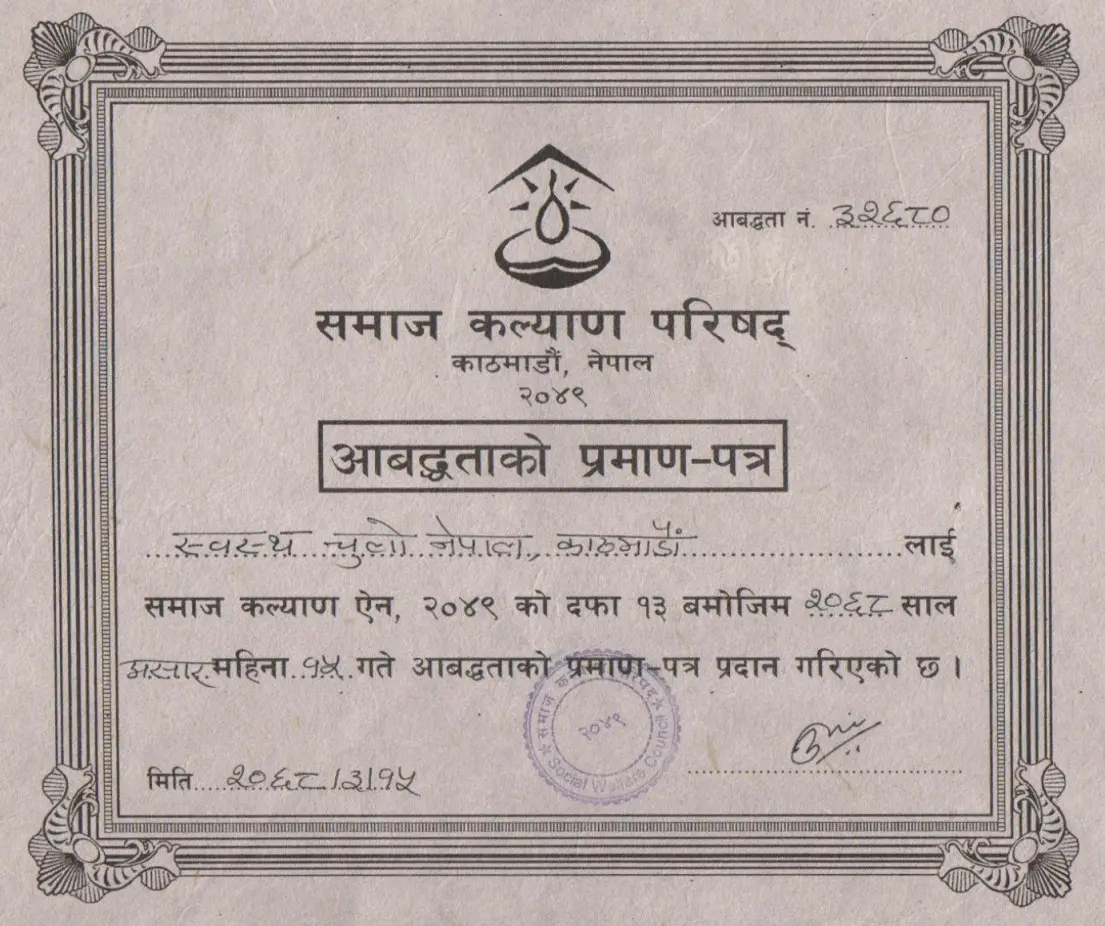 आबद्धता नं. ३२६८०
समाज कल्याण परिषद्
काठमाडौं, नेपाल
२०४९
आबद्धताको प्रमाण-पत्र
स्वस्थ चुलो नेपाल, काठमाडौं लाई
समाज कल्याण ऐन, २०४९ को दफा १३ बमोजिम २०६८ साल
असार महिना १५ गते आबद्धताको प्रमाण-पत्र प्रदान गरिएको छ ।
समाज कल्याण परिषद्
२०४९
Social Welfare Council
मिति २०६८।३।१५